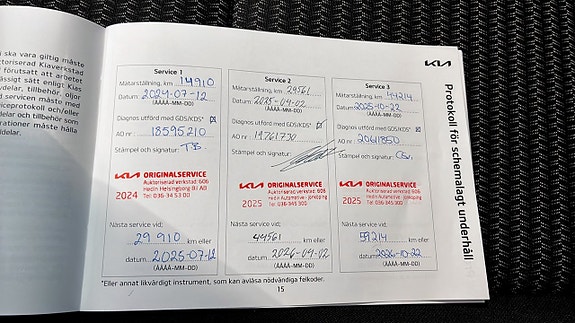 ska vara giltig måste
toriserad Kiaverkstad
förutsatt att arbetet
ässigt sätt enligt Kias
delar, tillbehör, oljor
d servicen måste med
viceprotokoll och/eller
och tillbehör som
rationer måste hålla
delar.
KIA
Protokoll för schemalagt underhåll
Service 1
Mätarställning, km 14910
Datum 2024-07-12
(ÅÅÅÅ-MM-DD)
Diagnos utförd med GDS/KDS*
AO nr 18595210
Stämpel och signatur: T.B.
KIA ORIGINALSERVICE
Auktoriserad verkstad: 606
Hedin Helsingborg Bil AB
2024 Tel: 036-34 53 00
Nästa service vid:
29 910 km eller
datum 2025-07-12
(ÅÅÅÅ-MM-DD)
Service 2
Mätarställning, km 29561
Datum 2025-04-02
(ÅÅÅÅ-MM-DD)
Diagnos utförd med GDS/KDS*
AO nr 19761730
Stämpel och signatur:
KIA ORIGINALSERVICE
Auktoriserad verkstad: 606
Hedin Automotive - Jönköping
2025 Tel: 036-345 300
Nästa service vid:
44561 km eller
datum 2026-04-02
(ÅÅÅÅ-MM-DD)
Service 3
Mätarställning, km 44214
Datum 2025-10-22
(ÅÅÅÅ-MM-DD)
Diagnos utförd med GDS/KDS*
AO nr 2061850
Stämpel och signatur:
KIA ORIGINALSERVICE
Auktoriserad verkstad: 606
Hedin Automotive - Jönköping
2025 Tel: 036-345 300
Nästa service vid:
59214 km eller
datum 2026-10-22
(ÅÅÅÅ-MM-DD)
*Eller annat likvärdigt instrument, som kan avläsa nödvändiga felkoder.
15